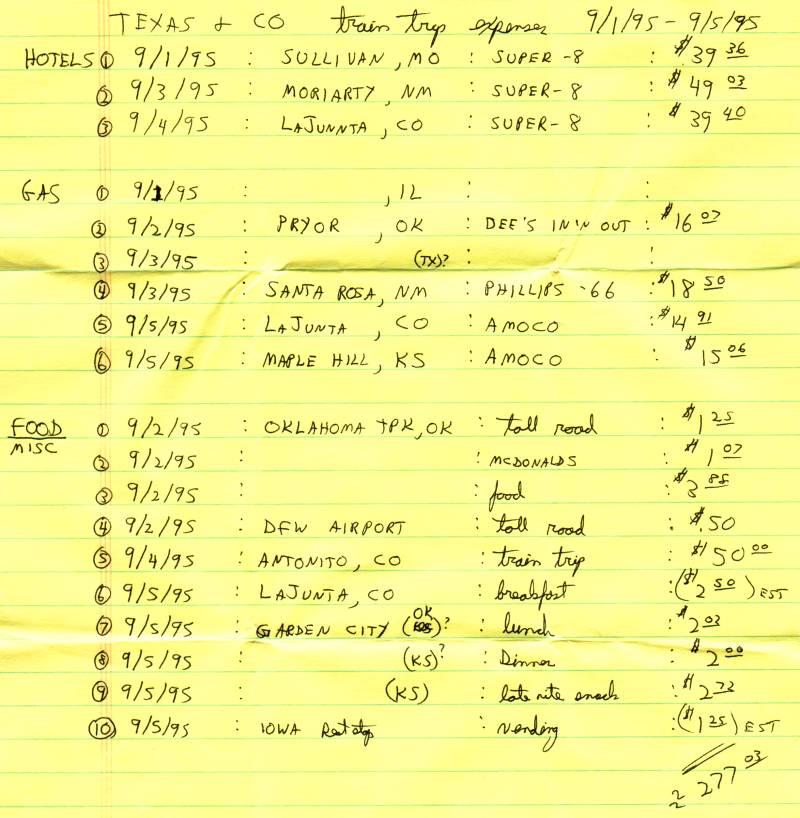 TEXAS & CO train trip expenses 9/1/95 - 9/5/95
HOTELS ① 9/1/95 : SULLIVAN, MO : SUPER-8 : $39 36
② 9/3/95 : MORIARTY, NM : SUPER-8 : $49 03
③ 9/4/95 : LAJUNNTA, CO : SUPER-8 : $39 40
GAS ① 9/1/95 : , IL : :
② 9/2/95 : PRYOR, OK : DEE'S IN'N OUT : $16 07
③ 9/3/95 (TX)? : :
④ 9/3/95 : SANTA ROSA, NM : PHILLIPS-66 : $18 50
⑤ 9/5/95 : LAJUNTA, CO : AMOCO : $14 91
⑥ 9/5/95 : MAPLE HILL, KS : AMOCO : $15 06
FOOD ① 9/2/95 : OKLAHOMA TPK, OK : toll road : $1 25
MISC
② 9/2/95 : : MCDONALDS : $1 07
③ 9/2/95 : : food : $3 85
④ 9/2/95 : DFW AIRPORT : toll road : $.50
⑤ 9/4/95 : ANTONITO, CO : train trip : $50 00
⑥ 9/5/95 : LAJUNTA, CO : breakfast : ($2 50) EST
⑦ 9/5/95 : GARDEN CITY (OK)? : lunch : $2 03
⑧ 9/5/95 : (KS)? : Dinner : $2 00
⑨ 9/5/95 : (KS) : late nite snack : $2 73
⑩ 9/5/95 : IOWA Rest stop : vending : ($1 25) EST
277 03